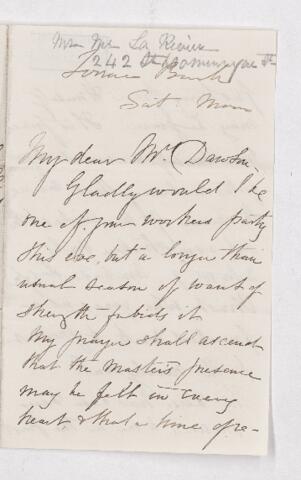 Mrs Mc La Riviere
242 St Dominique St
Terrace Bank
Sat. Morn
My dear Mr. Dawson,
Gladly would I be
one of your workers party
this eve, but a longer than
usual season of want of
strength forbids it
My prayer shall ascend
that the Master's presence
may be felt in every
heart & that a time of re-